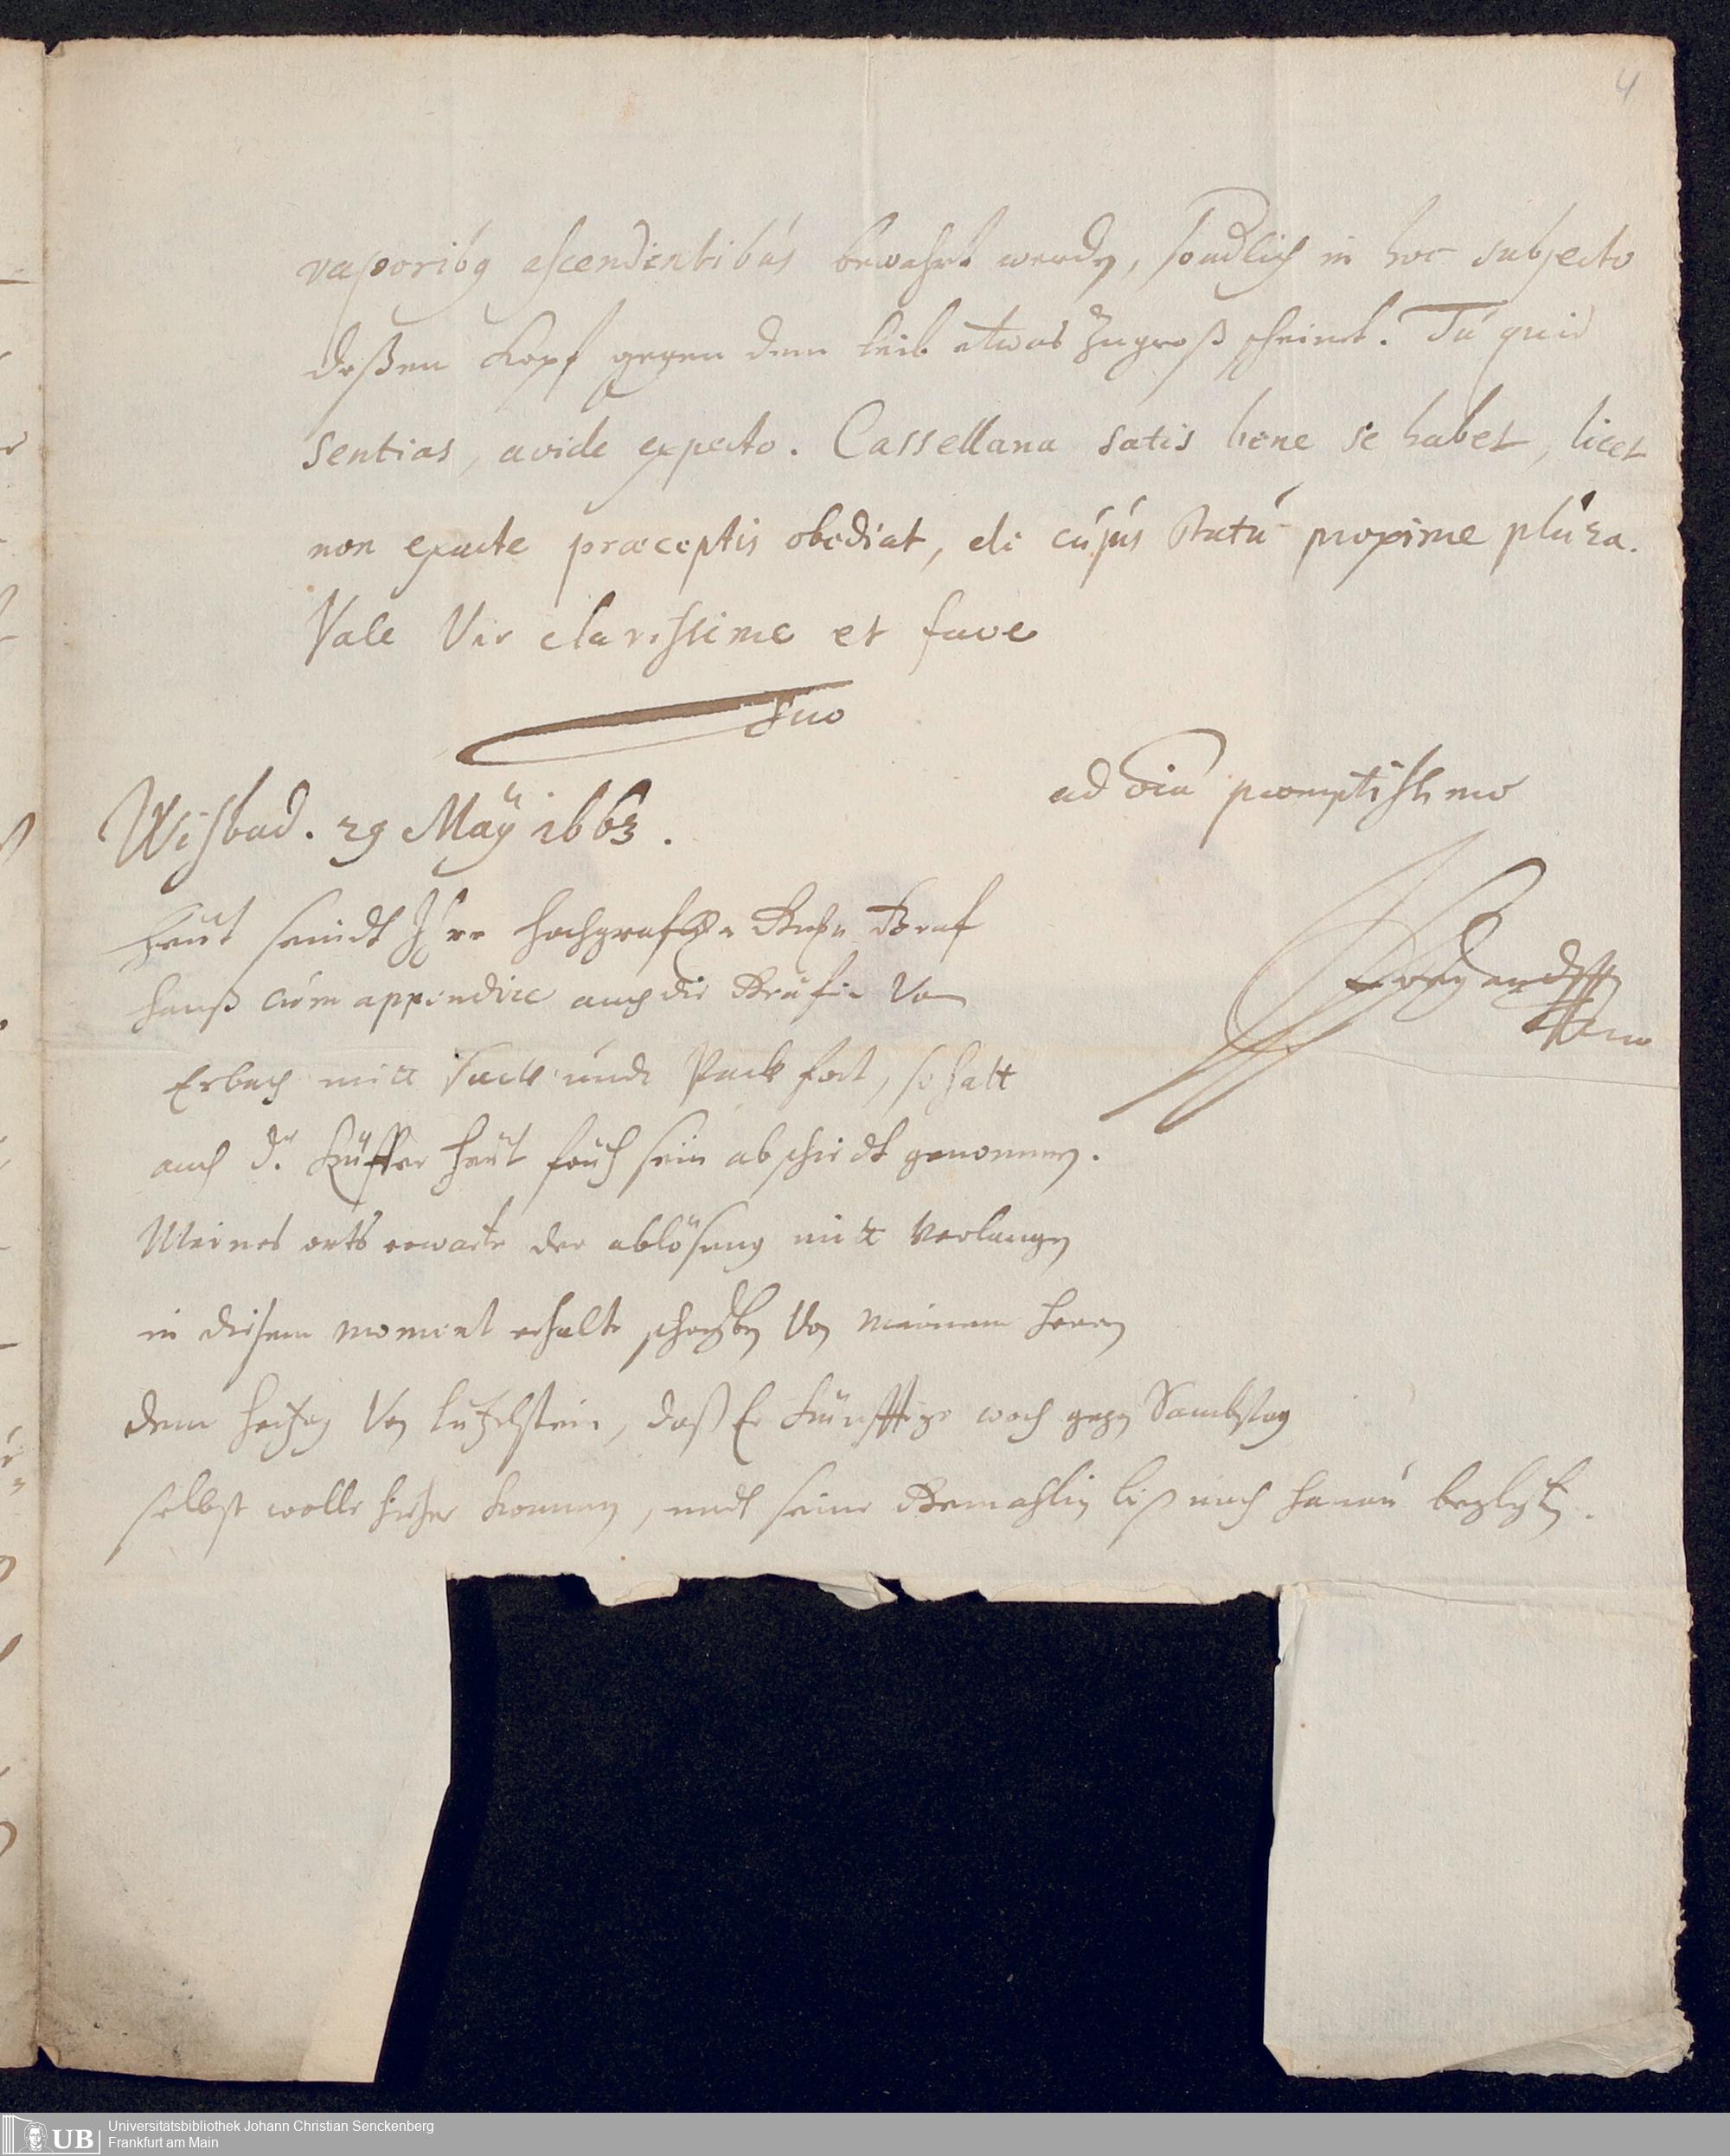 4
vaporib9 ascendentibús bewahrt werdẽ, sondlich in hoc subjecto
deßen Kopf gegen dem leib etwas zugroß scheint. Tú quid
sentias, avide expecto. Cassellana satis bene se habet, licet
non exacte præceptis obediat, de cújus statú proxime plúra.
Vale Vir clarissime et fave
Tuo
ad oia promptissimo
Wisbad. 29 Maÿ 1663.
Heut seindt Ihre hochgräfl. Graf
Hanß cúm appendice auch die Gräfin Von
Erbach mitt Sack undt Pack fort, so hatt
auch dr. Küffer heüt früh sein abschiedt genommen.
Meines orts erwarte der ablösung mitt verlangen
in diesem moment erhalte schreiben Von meinem herren
dem hertzog Von Lützelstein, daß Er künfftige woch gegen Sambstag
selbst wolle hieher kommen, undt seine Gemahlin biß nach Hanaú begleiten.
Universitätsbibliothek Johann Christian Senckenberg
Frankfurt am Main
UB